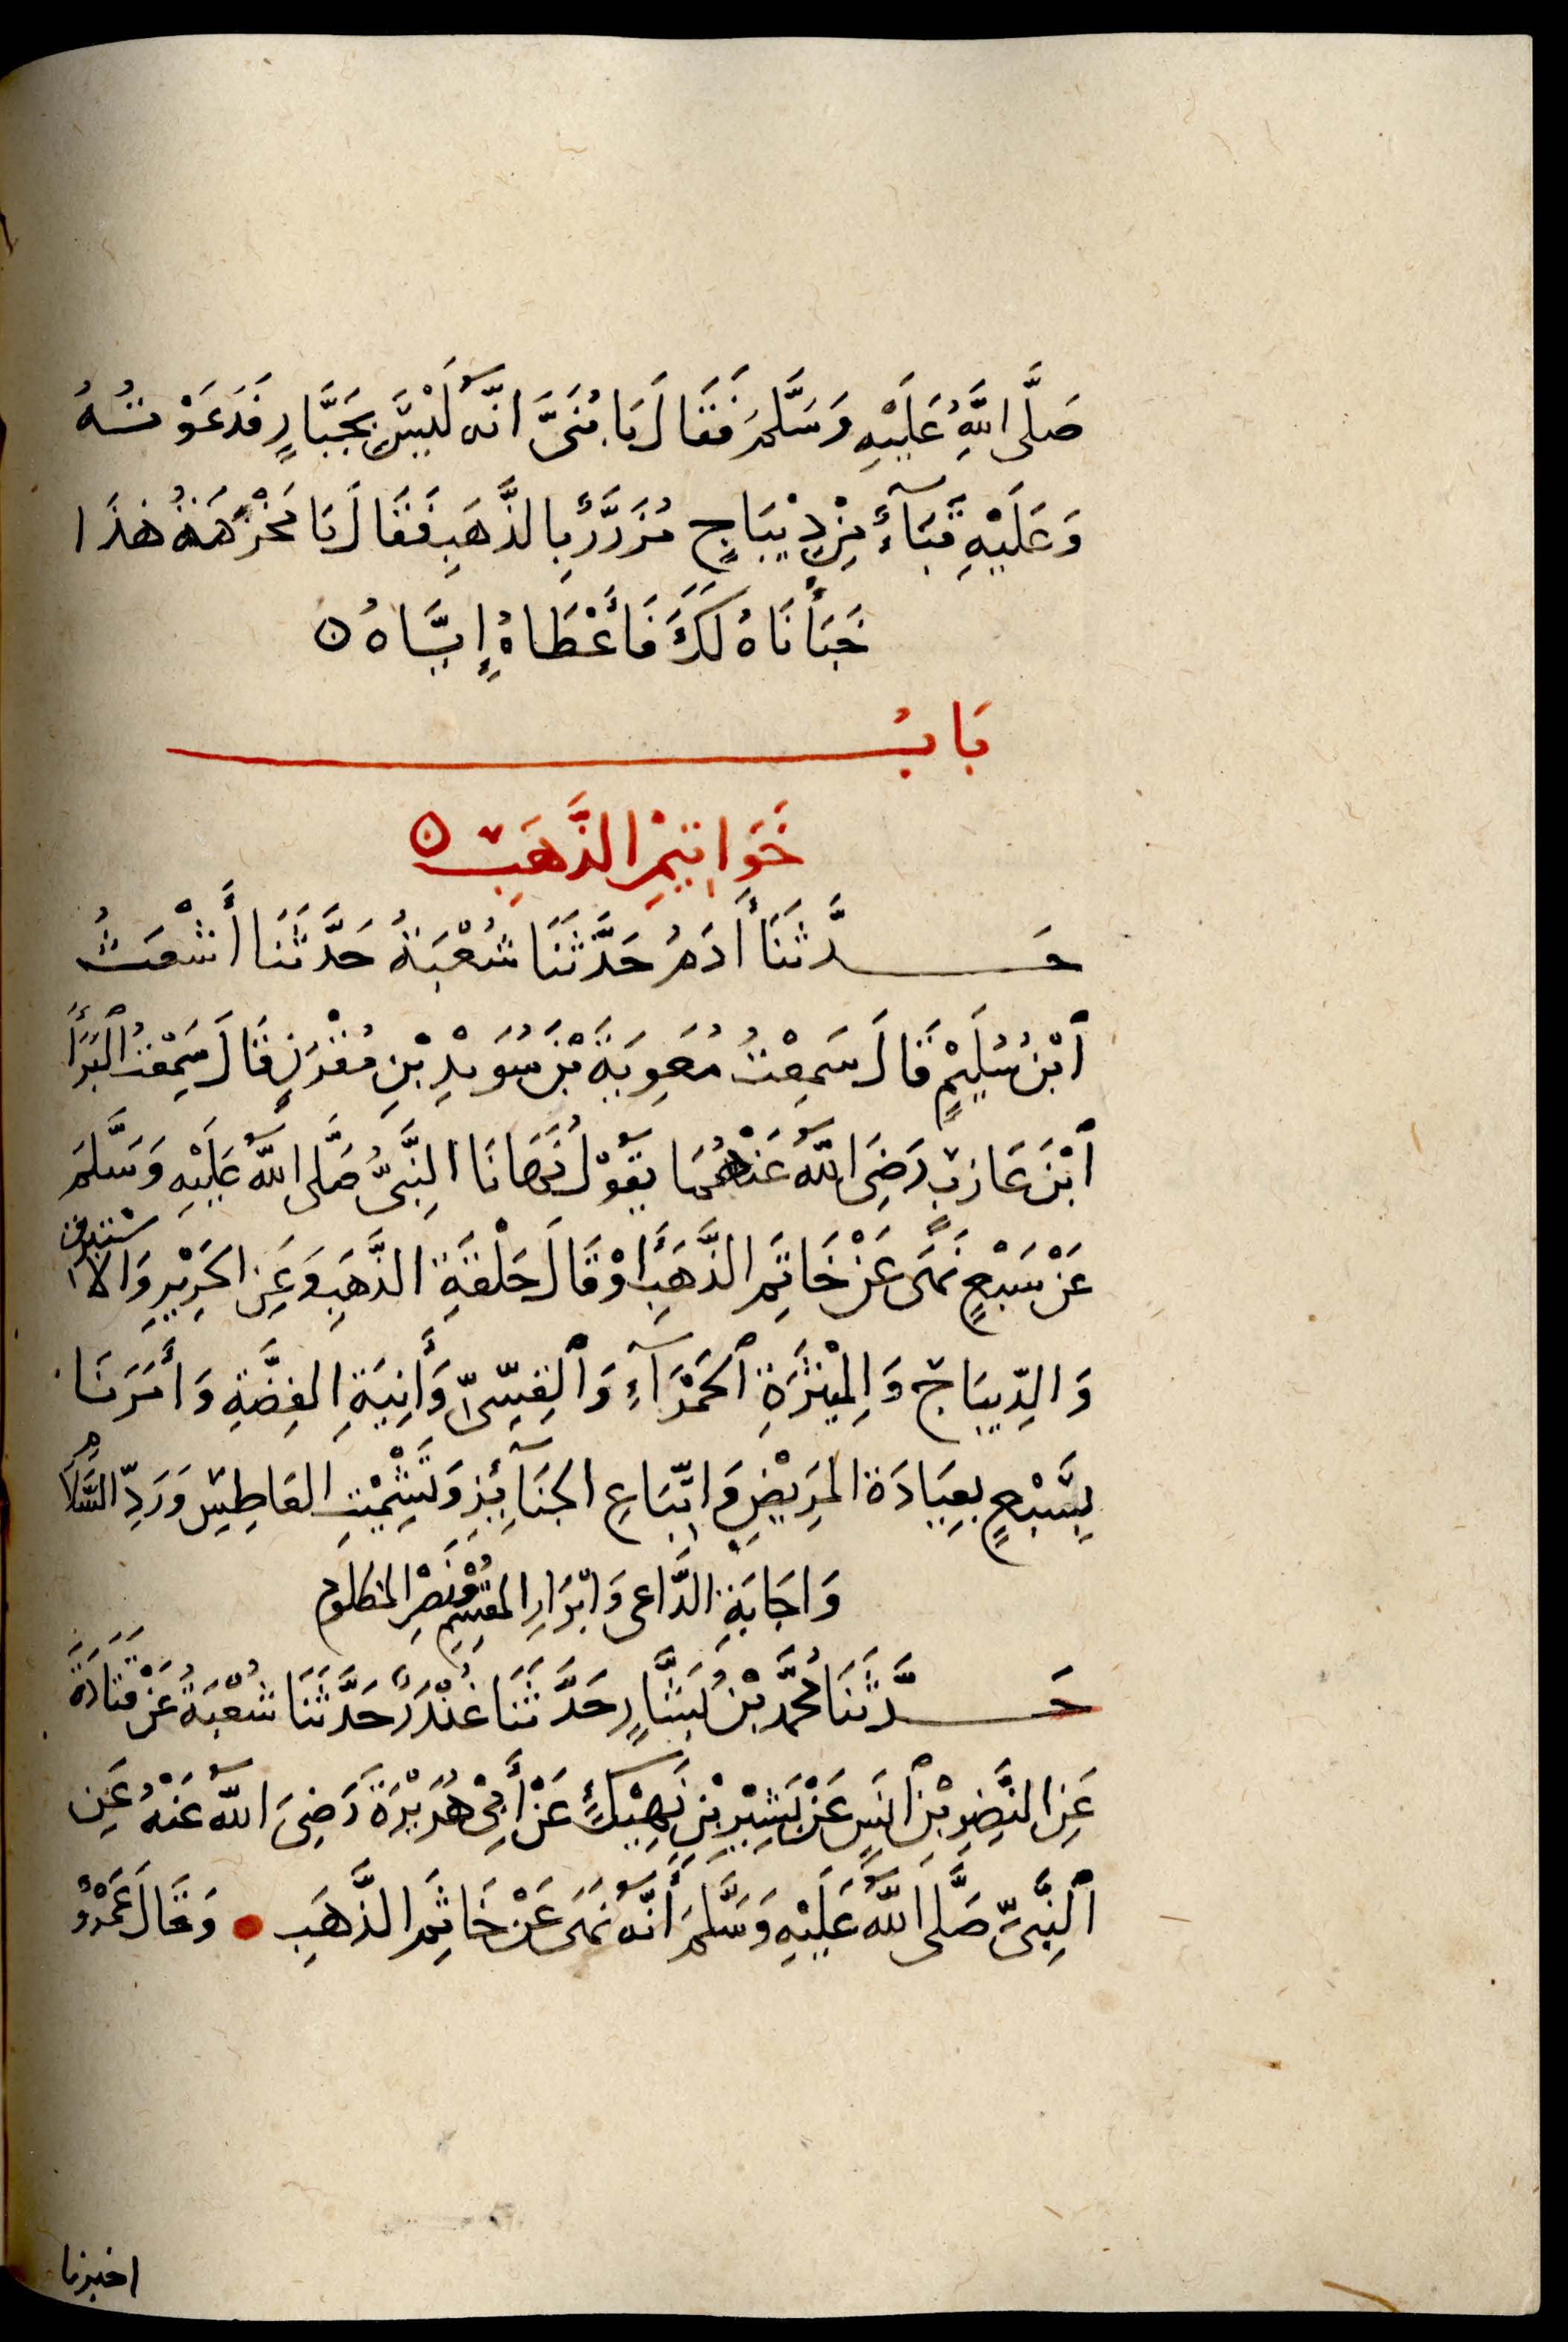 صَلَّى اللَّهُ عَلَيْهِ وَسَلَّمَ فَقَالَ يَا بُنَىَّ انَّهُ لَيْسَ بِجَبَّارٍ فَدَعَوْتُهُ
وَعَلَيْهِ قَبَآءٌ مِنْ دِيْبَاجٍ مُزَرَّرٌ بِالذَّهَبِ فَقَالَ يَا مَخْرَمَةُ هٰذَا
خَبَأْنَاهُ لَكَ فَأَعْطَاهُ إِيَّاهُ
بَابُ
خَوَاتِيْمِ الذَّهَبِ
حَدَّثَنَا أَدَمُ حَدَّثَنَا شُعْبَةُ حَدَّثَنَا أَشْعَثُ
ابْنُ سُلَيْمٍ قَالَ سَمِعْتُ مُعَوِيَةَ بْنَ سُوَيْدِ بْنِ مُقْرِنٍ قَالَ سَمِعْتُ الْبَرَأَ
ابْنَ عَازِبٍ رَضِىَ اللَّهُ عَنْهُمَا يَقُوْلُ نَهَانَا النَّبِىُّ صَلَّى اللَّهُ عَلَيْهِ وَسَلَّمَ
عَنْ سَبْعٍ نَهَى عَنْ خَاتِمِ الذَّهَبِ أَوْ قَالَ حَلْقَةِ الذَّهَبِ وَعَنِ الحَرِيْرِ وَالاِسْتَبْرَقِ
وَالدِّيبَاجِ وَالمِيْثَرَةِ الحَمْرَآءِ وَالْقِسِّىِّ وَأَنِيَةِ الفِضَّةِ وَأَمَرَنَا
بِسَبْعٍ بِعِيَادَةِ المَرِيْضِ وَاتِّبَاعِ الجَنَآئِزِ وَتَشْمِيْتِ العَاطِسِ وَرَدِّ السَّلَامِ
وَاجَابَةِ الدَّاعِى وَابْرَارِ المُقْسِمِ وَنَصْرِ المَظْلُومِ
حَدَّثَنَا مُحَمَّدُ بْنُ بَشَّارٍ حَدَّثَنَا غُنْدَرٌ حَدَّثَنَا شُعْبَةُ عَنْ قَتَادَةَ
عَنِ النَّضْرِ بْنِ أَنَسٍ عَنْ بَشِيْرِ بْنِ نَهِيْكٍ عَنْ أَبِىْ هُرَيْرَةَ رَضِىَ اللَّهُ عَنْهُ عَنِ
النَّبِىِّ صَلَّى اللَّهُ عَلَيْهِ وَسَلَّمَ أَنَّهُ نَهَى عَنْ خَاتِمِ الذَّهَبِ • وَقَالَ عَمْرٌو
اخبرنا